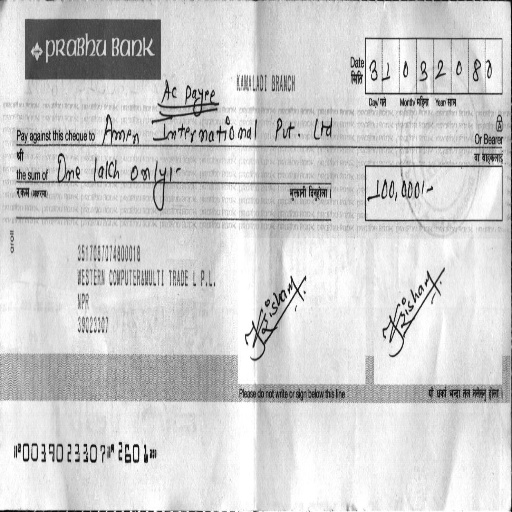 PRABHU BANK
KAMALADI BRANCH
Date मिति 31032080
Day/ गते Month/ महिना Year/ साल
AC Payee
Pay against this cheque to Amen International Pvt. Ltd
Or Bearer
श्री
वा वाहकलाई
the sum of One lakh only/-
रकम (अक्षरमा)
100,000/-
3517087074800018
WESTERN COMPUTER&MULTI TRADE L P.L.
NPR
39023307
Please do not write or sign below this line
⑈0039023307⑈ 2601⑈